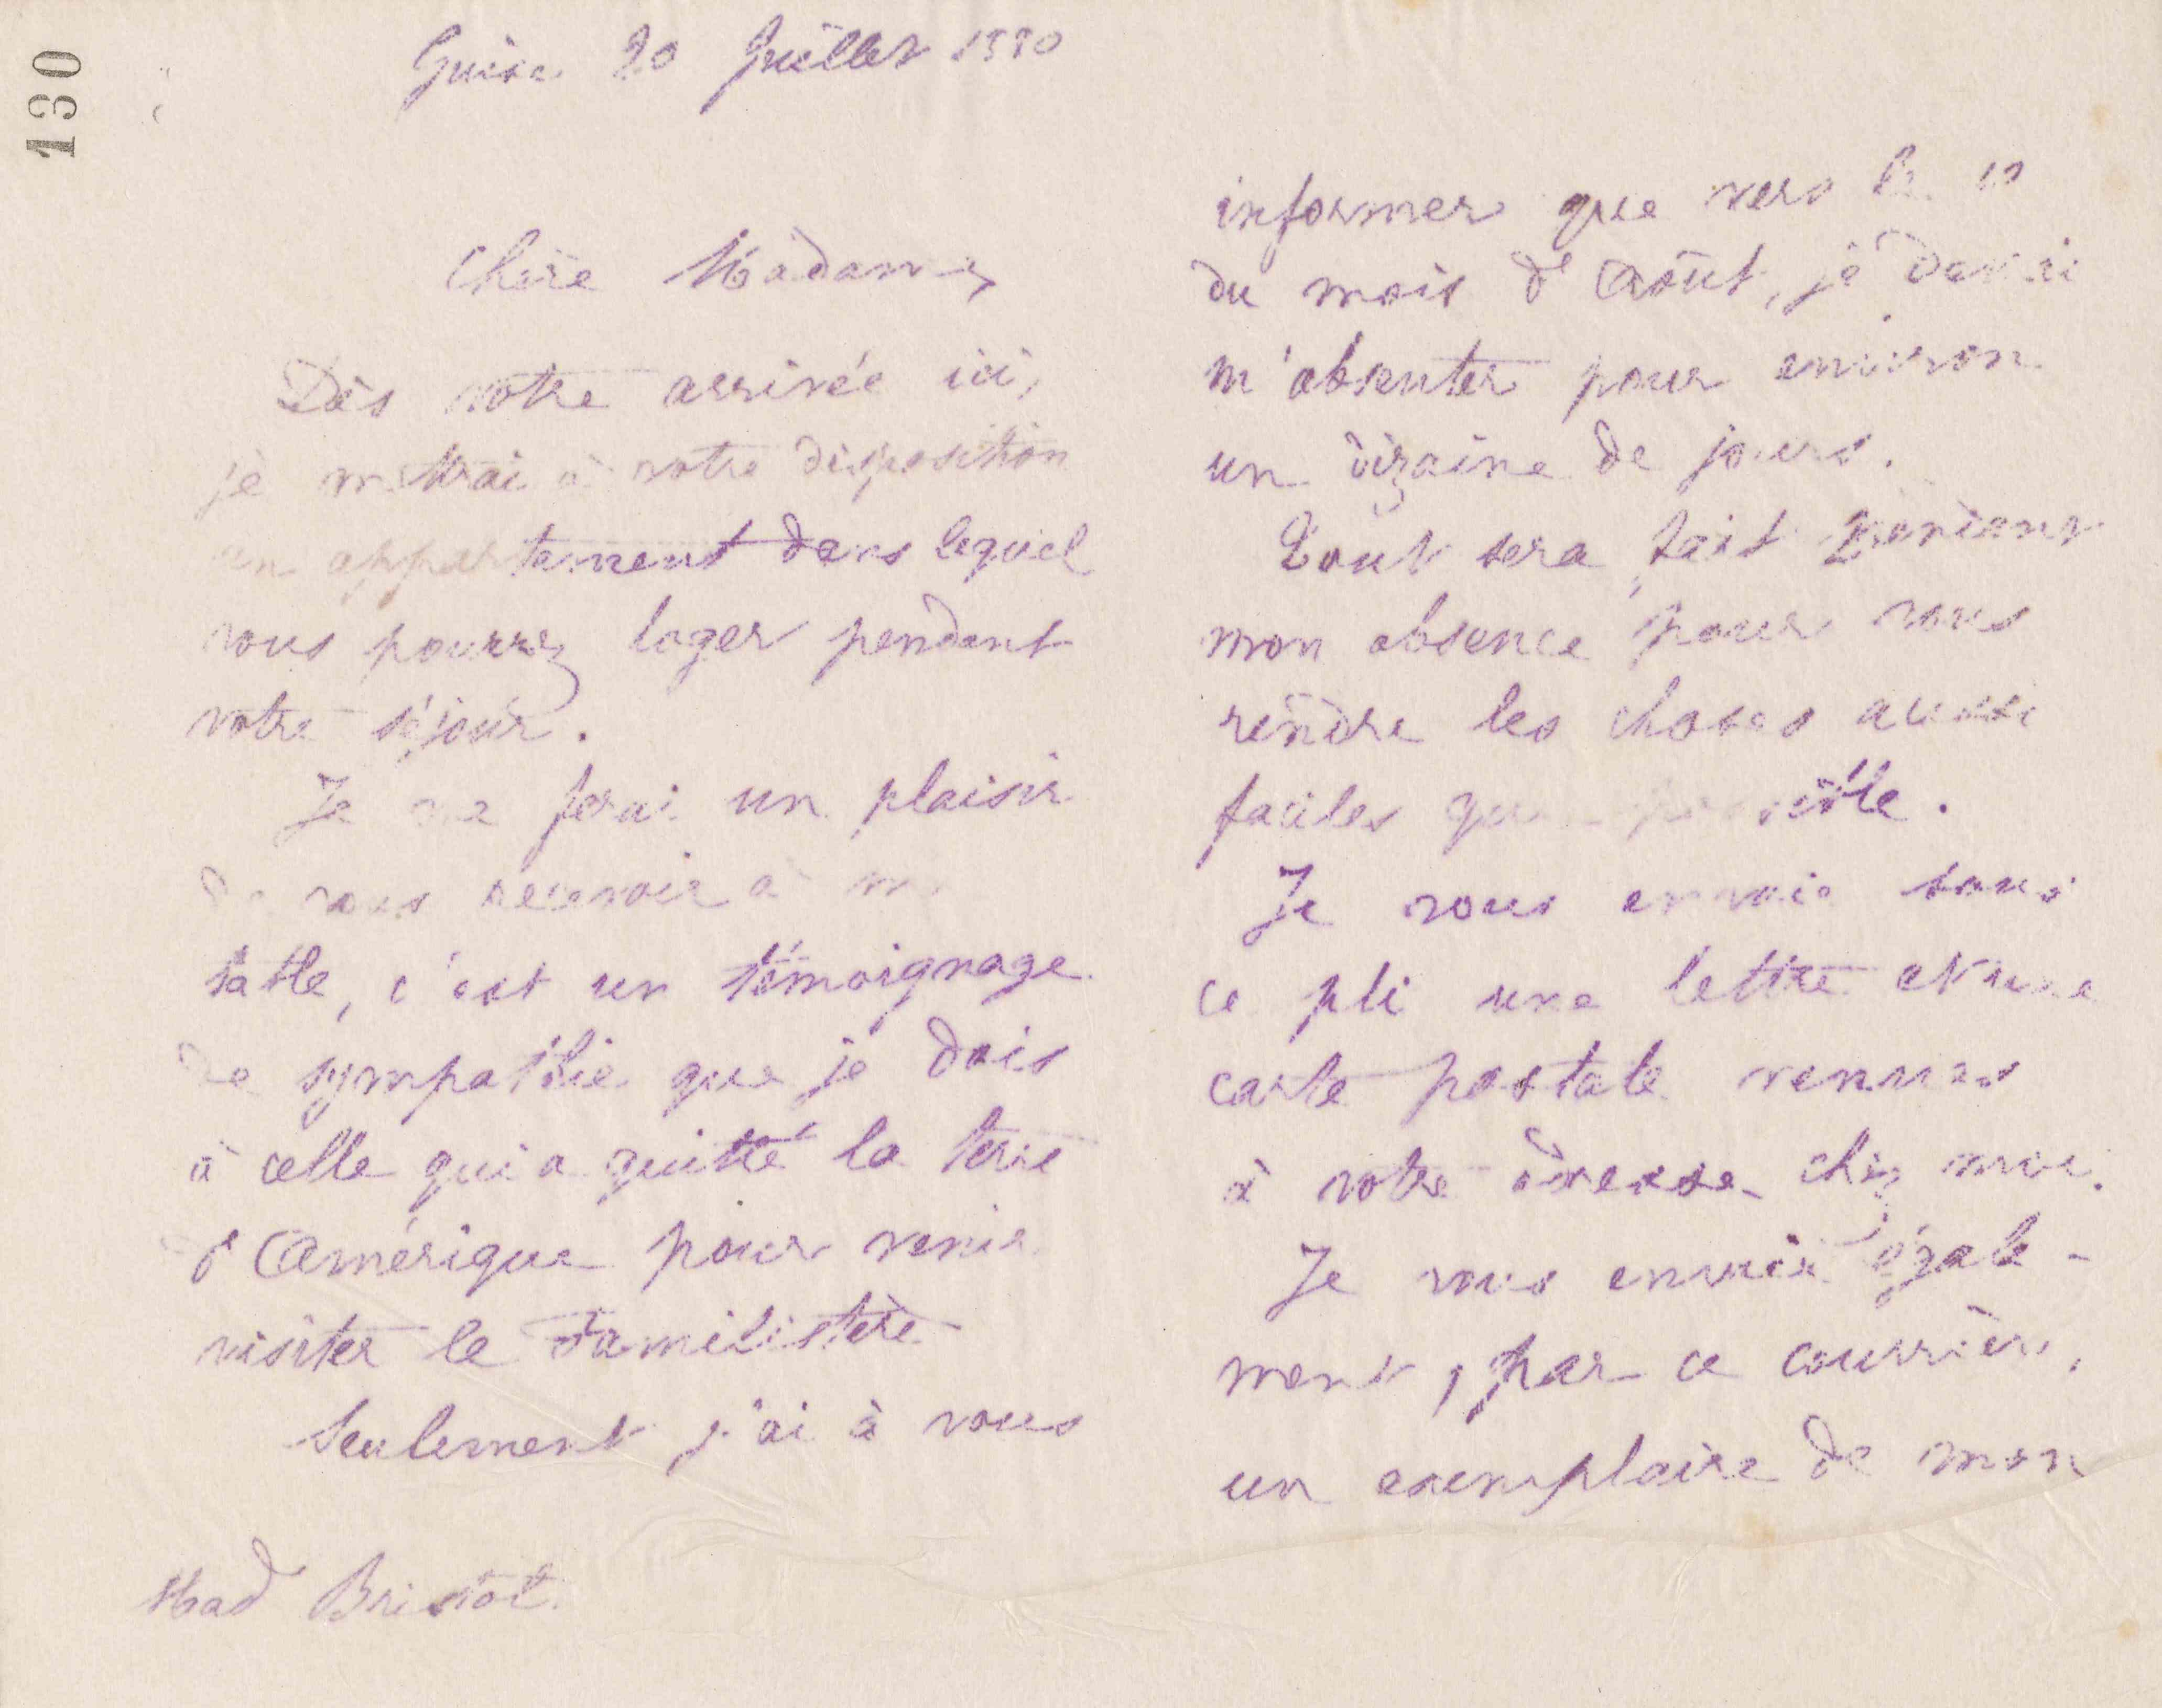 130
Guise 20 Juillet 1880
Chère Madame,
Dès votre arrivée ici,
je mettrai à votre disposition
un appartement dans lequel
vous pourrez loger pendant
votre séjour.
Je me ferai un plaisir
de vous recevoir à ma
table, c'est un témoignage
de sympathie que je dois
à celle qui a quitté la terre
d'Amérique pour venir
visiter le Familistère
Seulement j'ai à vous
Mad Bristol.
informer que vers le
du mois d'Août, je devrai
m'absenter pour environ
un dizaine de jours.
Tout sera fait pendant
mon absence pour vous
rendre les choses aussi
faciles que possible.
Je vous envoie sous
ce pli une lettre et une
carte postale venues
à votre adresse chez moi.
Je vous envoie égale-
ment, par ce courrier,
un exemplaire de mon